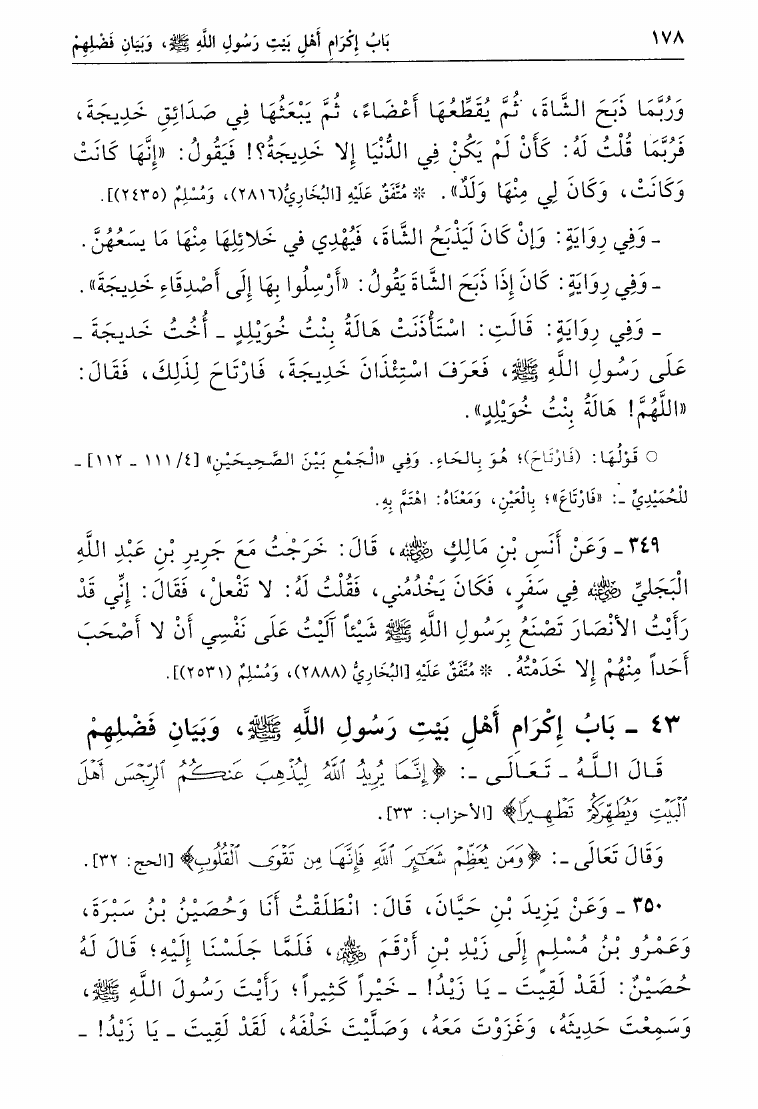 ١٧٨ بَابُ إِكْرَامِ أَهْلِ بَيْتِ رَسُولِ اللَّهِ ﷺ، وَبَيَانِ فَضْلِهِمْ
وَرُبَّمَا ذَبَحَ الشَّاةَ، ثُمَّ يُقَطِّعُهَا أَعْضَاءً، ثُمَّ يَبْعَثُهَا فِي صَدَائِقِ خَدِيجَةَ،
فَرُبَّمَا قُلْتُ لَهُ: كَأَنْ لَمْ يَكُنْ فِي الدُّنْيَا إِلا خَدِيجَةُ؟! فَيَقُولُ: «إِنَّهَا كَانَتْ
وَكَانَتْ، وَكَانَ لِي مِنْهَا وَلَدٌ». * مُتَّفَقٌ عَلَيْهِ [البُخَارِيُّ(٢٨١٦)، وَمُسْلِمٌ (٢٤٣٥)].
ـ وَفِي رِوَايَةٍ: وَإِنْ كَانَ لَيَذْبَحُ الشَّاةَ، فَيُهْدِي في خَلائِلِهَا مِنْهَا مَا يسَعُهُنَّ.
ـ وَفِي رِوَايَةٍ: كَانَ إِذَا ذَبَحَ الشَّاةَ يَقُولُ: «أَرْسِلُوا بِهَا إِلَى أَصْدِقَاءِ خَدِيجَةَ».
ـ وَفِي رِوَايَةٍ: قَالَتِ: اسْتَأْذَنَتْ هَالَةُ بِنْتُ خُوَيْلِدٍ ـ أُخْتُ خَديجَةَ ـ
عَلَى رَسُولِ اللَّهِ ﷺ، فَعَرَفَ اسْتِئْذَانَ خَدِيجَةَ، فَارْتَاحَ لِذَلِكَ، فَقَالَ:
«اللَّهُمَّ! هَالَةُ بِنْتُ خُوَيْلِدٍ».
○ قَوْلُهَا: (فَارْتَاحَ)؛ هُوَ بِالحَاءِ. وَفِي «الْجَمْعِ بَيْنَ الصَّحِيحَيْنِ» [٤/ ١١١ ـ ١١٢] ـ
لِلْحُمَيْدِيِّ ـ: «فَارْتَاعَ»؛ بِالْعَيْنِ، وَمَعْنَاهُ: اهْتَمَّ بِهِ.
٣٤٩ ـ وَعَنْ أَنَسِ بْنِ مَالِكٍ رضي الله عنه، قَالَ: خَرَجْتُ مَعَ جَرِيرِ بْنِ عَبْدِ اللَّهِ
الْبَجَلِيِّ رضي الله عنه فِي سَفَرٍ، فَكَانَ يَخْدُمُنِي، فَقُلْتُ لَهُ: لا تَفْعلْ، فَقَالَ: إِنِّي قَدْ
رَأَيْتُ الأَنْصَارَ تَصْنَعُ بِرَسُولِ اللَّهِ ﷺ شَيْئاً آلَيْتُ عَلَى نَفْسِي أَنْ لا أَصْحَبَ
أَحَداً مِنْهُمْ إِلا خَدَمْتُهُ. * مُتَّفَقٌ عَلَيْهِ [البُخَارِيُّ (٢٨٨٨)، وَمُسْلِمٌ (٢٥٣١)].
٤٣ ـ بَابُ إِكْرَامِ أَهْلِ بَيْتِ رَسُولِ اللَّهِ ﷺ، وَبَيَانِ فَضْلِهِمْ
قَالَ اللَّهُ ـ تَعَالَى ـ: ﴿إِنَّمَا يُرِيدُ اللَّهُ لِيُذْهِبَ عَنكُمُ الرِّجْسَ أَهْلَ
الْبَيْتِ وَيُطَهِّرَكُمْ تَطْهِيرًا﴾ [الأحزاب: ٣٣].
وَقَالَ تَعَالَى ـ: ﴿وَمَن يُعَظِّمْ شَعَائِرَ اللَّهِ فَإِنَّهَا مِن تَقْوَى الْقُلُوبِ﴾ [الحج: ٣٢].
٣٥٠ ـ وَعَنْ يَزِيدَ بْنِ حَيَّانَ، قَالَ: انْطَلَقْتُ أَنَا وَحُصَيْنُ بْنُ سَبْرَةَ،
وَعَمْرُو بْنُ مُسْلِمٍ إِلَى زَيْدِ بْنِ أَرْقَمَ رضي الله عنهم، فَلَمَّا جَلَسْنَا إِلَيْهِ؛ قَالَ لَهُ
حُصَيْنٌ: لَقَدْ لَقِيتَ ـ يَا زَيْدُ! ـ خَيْراً كَثِيراً؛ رَأَيْتَ رَسُولَ اللَّهِ ﷺ،
وَسَمِعْتَ حَدِيثَهُ، وَغَزَوْتَ مَعَهُ، وَصَلَّيْتَ خَلْفَهُ، لَقَدْ لَقِيتَ ـ يَا زَيْدُ! ـ